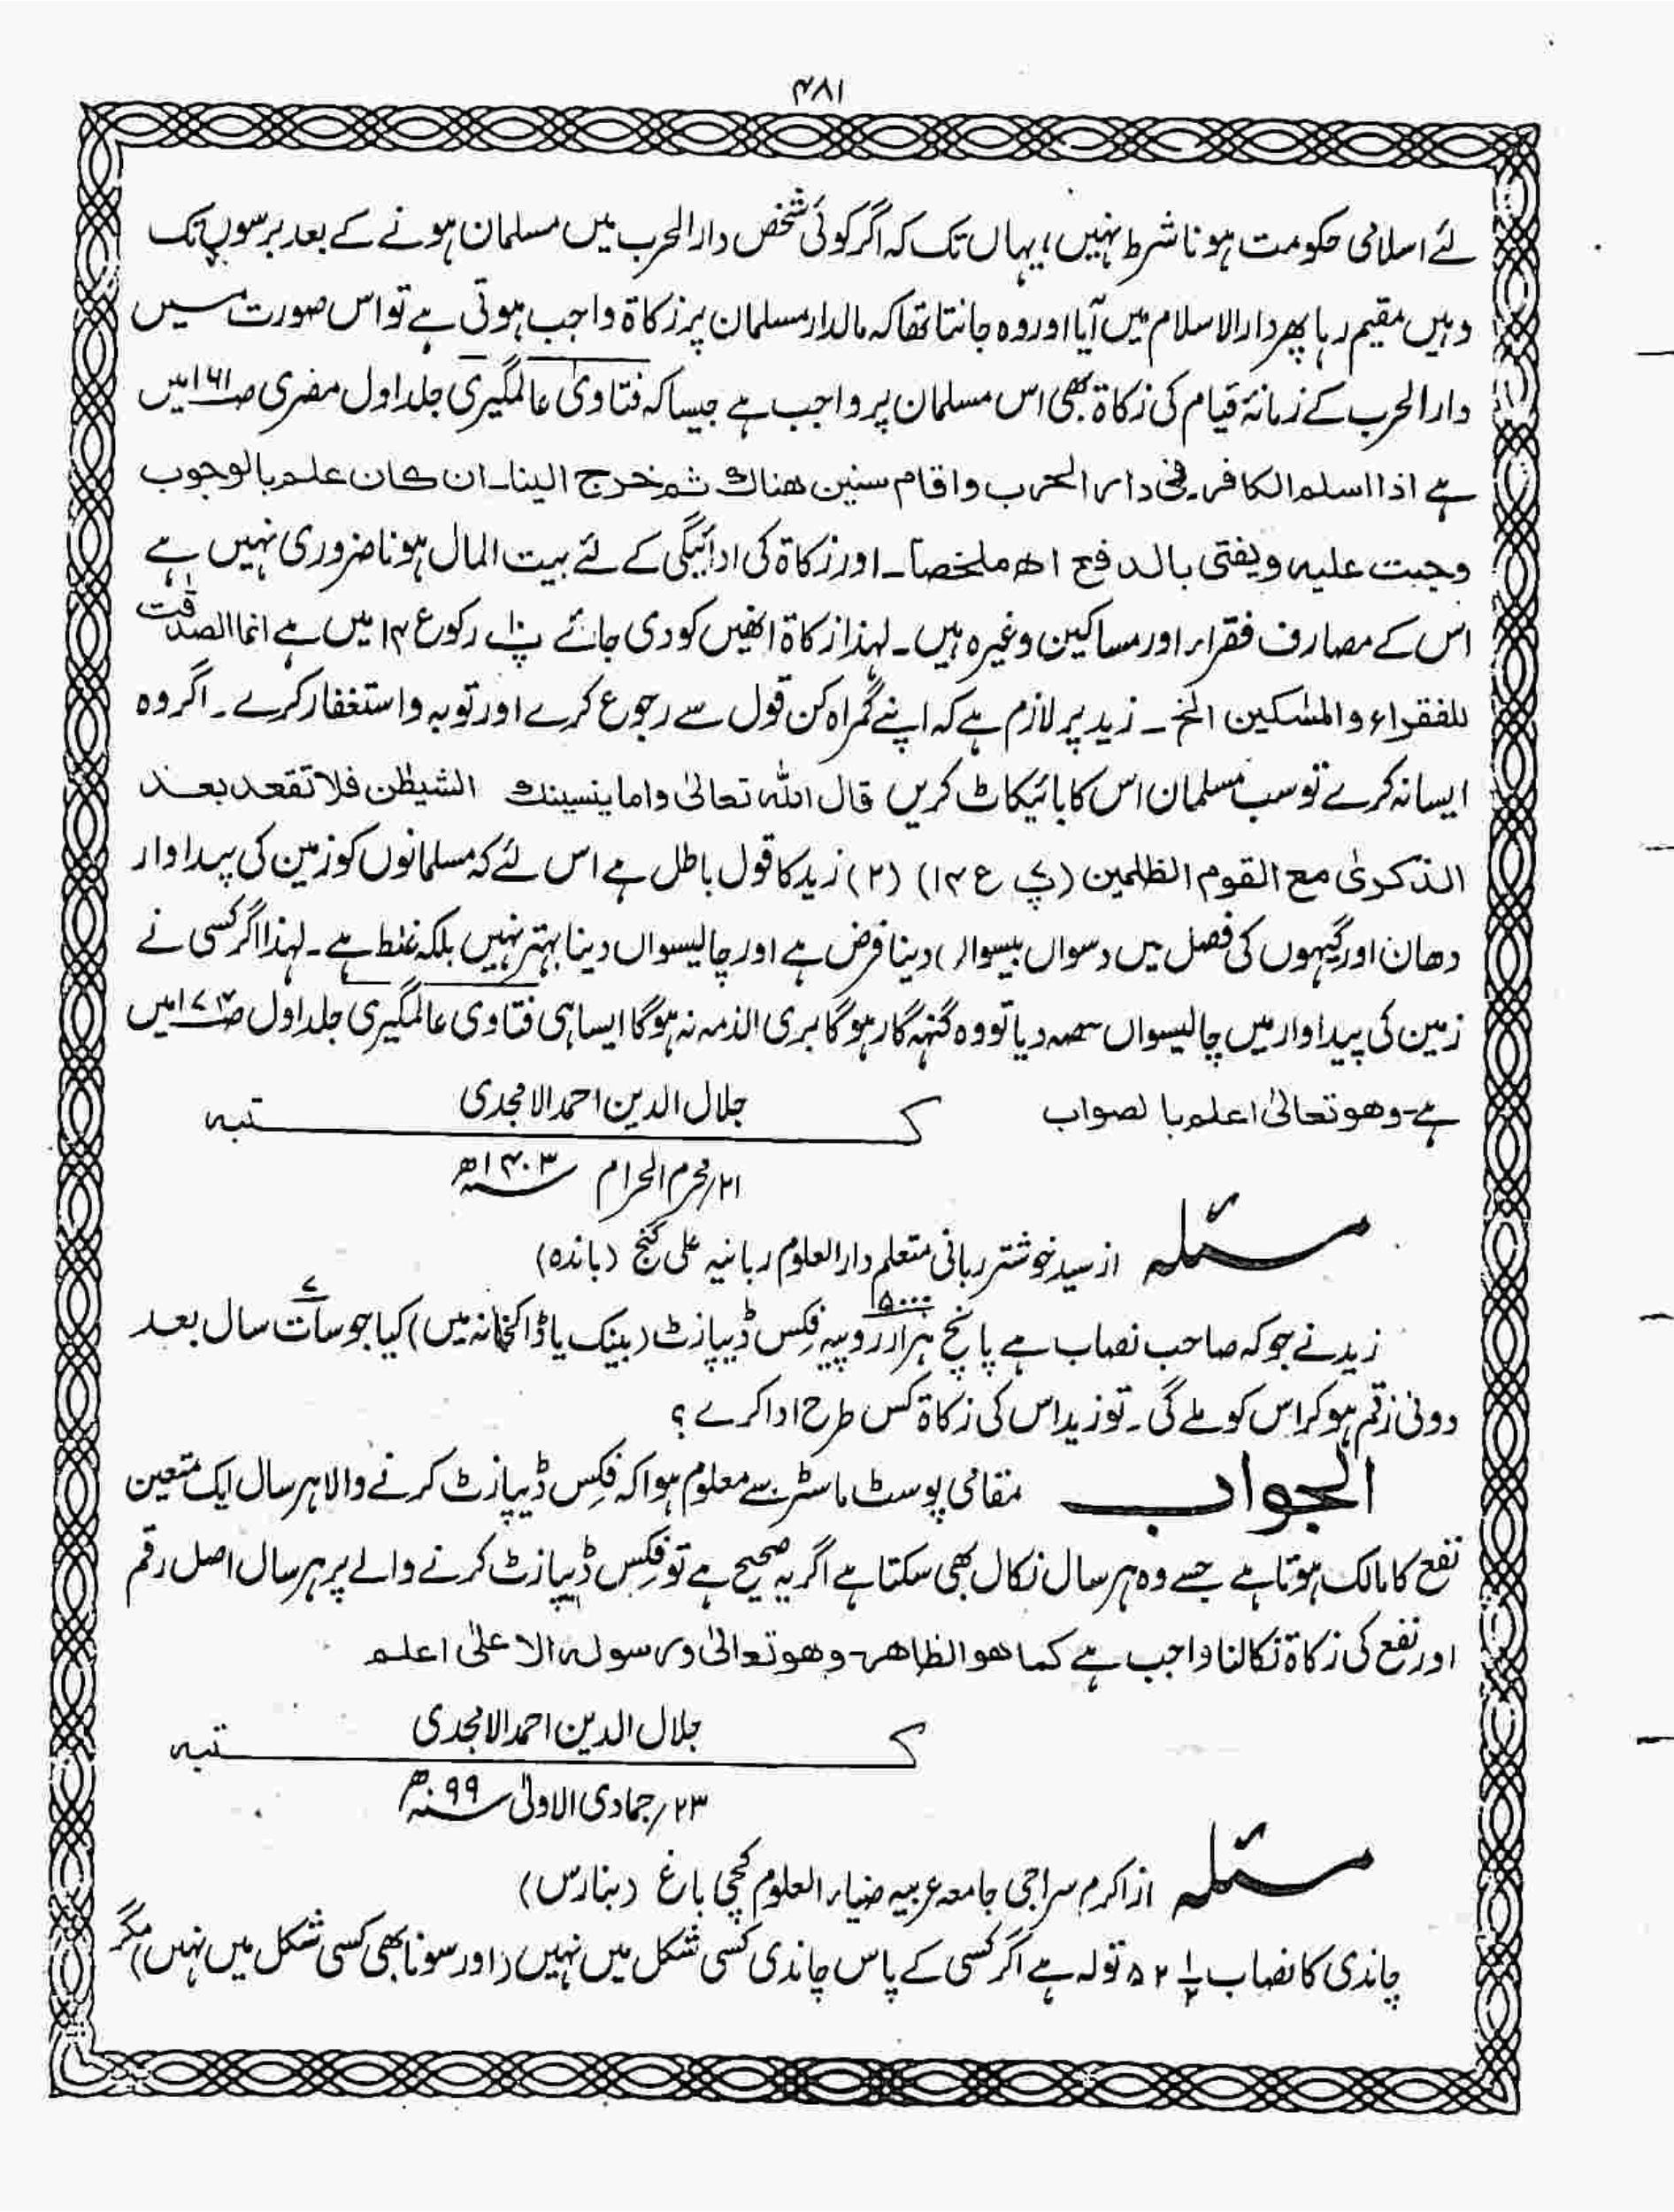 ۴۸۱
لئے اسلامی حکومت ہونا شرط نہیں، یہاں تک کہ اگر کوئی شخص دارالحرب میں مسلمان ہونے کے بعد برسوں تک
وہیں مقیم رہا پھر دارالاسلام میں آیا اور وہ جانتا تھا کہ مالدار مسلمان پر زکاۃ واجب ہوتی ہے تو اس صورت میں
دارالحرب کے زمانۂ قیام کی زکاۃ بھی اس مسلمان پر واجب ہے جیسا کہ فتاویٰ عالمگیری جلد اول مصری ص۱۶۱ میں
ہے اذا اسلم الکافر فی دار الحرب واقام سنین ھناك ثم خرج الینا۔ ان کان علم بالوجوب
وجبت علیہ ویفتی بالدفع اھ ملخصاً۔ اور زکاۃ کی ادائیگی کے لئے بیت المال ہونا ضروری نہیں ہے
اس کے مصارف فقراء اور مساکین وغیرہ ہیں۔ لہذا زکاۃ انھیں کو دی جائے پ۱۰ رکوع ۱۴ میں ہے انما الصدقٰت
للفقراء والمسٰکین الخ۔ زید پر لازم ہے کہ اپنے گمراہ کن قول سے رجوع کرے اور توبہ واستغفار کرے۔ اگر وہ
ایسا نہ کرے تو سب مسلمان اس کا بائیکاٹ کریں قال اللہ تعالیٰ واما ینسینك الشیطٰن فلا تقعد بعد
الذکریٰ مع القوم الظٰلمین (پ۷ ع ۱۴) (۲) زید کا قول باطل ہے اس لئے کہ مسلمانوں کو زمین کی پیداوار
دھان اور گیہوں کی فصل میں دسواں بیسواں دینا فرض ہے اور چالیسواں دینا بہتر نہیں بلکہ غلط ہے۔ لہذا اگر کسی نے
زمین کی پیداوار میں چالیسواں حصہ دیا تو وہ گنہگار ہوگا بری الذمہ نہ ہوگا ایسا ہی فتاویٰ عالمگیری جلد اول ص۱۷۴ میں
ہے۔ وھو تعالیٰ اعلم بالصواب
کتبہ جلال الدین احمد الامجدی
۲۱/ محرم الحرام ۱۴۰۳ھ
مسئلہ از سید خوشتر ربانی متعلم دارالعلوم ربانیہ علی گنج (باندہ)
زید نے جو کہ صاحب نصاب ہے پانچ ہزار ۵۰۰۰ روپیہ فکس ڈپازٹ (بینک یا ڈاکخانہ میں) کیا جو سات ۷ سال بعد
دونی رقم ہو کر اس کو ملے گی۔ تو زید اس کی زکاۃ کس طرح ادا کرے؟
الجواب مقامی پوسٹ ماسٹر سے معلوم ہوا کہ فکس ڈیپازٹ کرنے والا ہر سال ایک متعین
نفع کا مالک ہوتا ہے جسے وہ ہر سال نکال بھی سکتا ہے اگر یہ صحیح ہے تو فکس ڈیپازٹ کرنے والے پر ہر سال اصل رقم
اور نفع کی زکاۃ نکالنا واجب ہے کما ھو الظاھر۔ وھو تعالیٰ ورسولہ الاعلیٰ اعلم
کتبہ جلال الدین احمد الامجدی
۲۳/ جمادی الاولیٰ ۹۹ھ
مسئلہ از اکرم سراجی جامعہ عربیہ ضیاء العلوم کچی باغ (بنارس)
چاندی کا نصاب ۵۲ ۱/۲ تولہ ہے اگر کسی کے پاس چاندی کسی شکل میں نہیں (اور سونا بھی کسی شکل میں نہیں) مگر